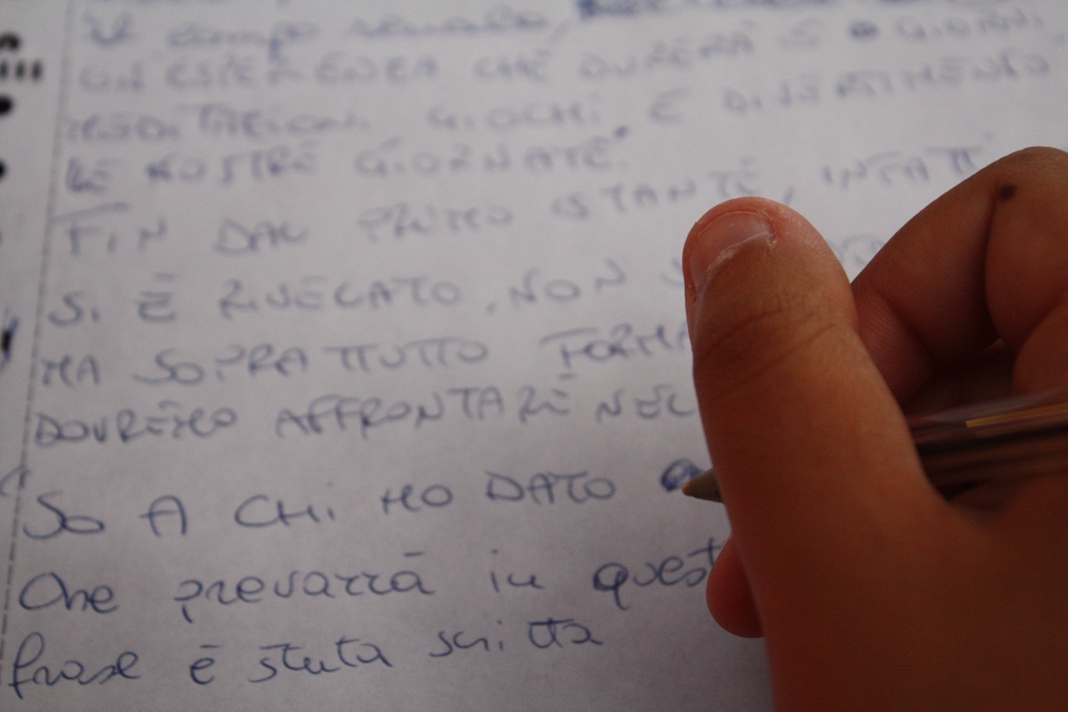 Il campo
UN ESPERIENZA CHE DURERÀ 5 GIORNI.
MEDITAZIONI GIOCHI E DIVERTIMENTO
LE NOSTRE GIORNATE.
FIN DAL PRIMO ISTANTE, INFATTI
SI È RIVELATO, NON
MA SOPRATTUTTO FORMA
DOVREMO AFFRONTARE NEL
SO A CHI HO DATO
Che prevarrà in quest
frase è stata scritta